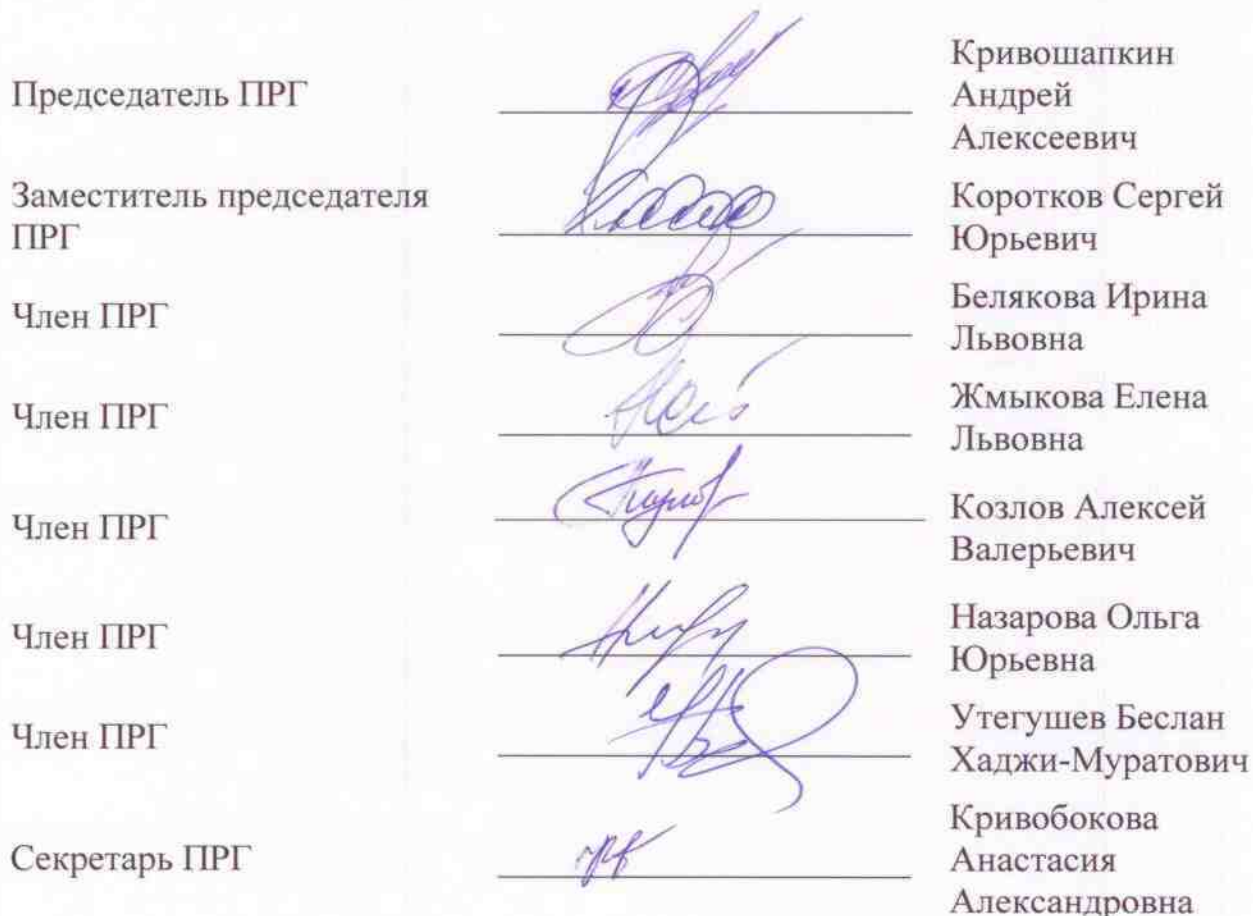 Председатель ПРГ
Кривошапкин
Андрей
Алексеевич
Заместитель председателя
ПРГ
Коротков Сергей
Юрьевич
Член ПРГ
Белякова Ирина
Львовна
Член ПРГ
Жмыкова Елена
Львовна
Член ПРГ
Козлов Алексей
Валерьевич
Член ПРГ
Назарова Ольга
Юрьевна
Член ПРГ
Утегушев Беслан
Хаджи-Муратович
Секретарь ПРГ
Кривобокова
Анастасия
Александровна